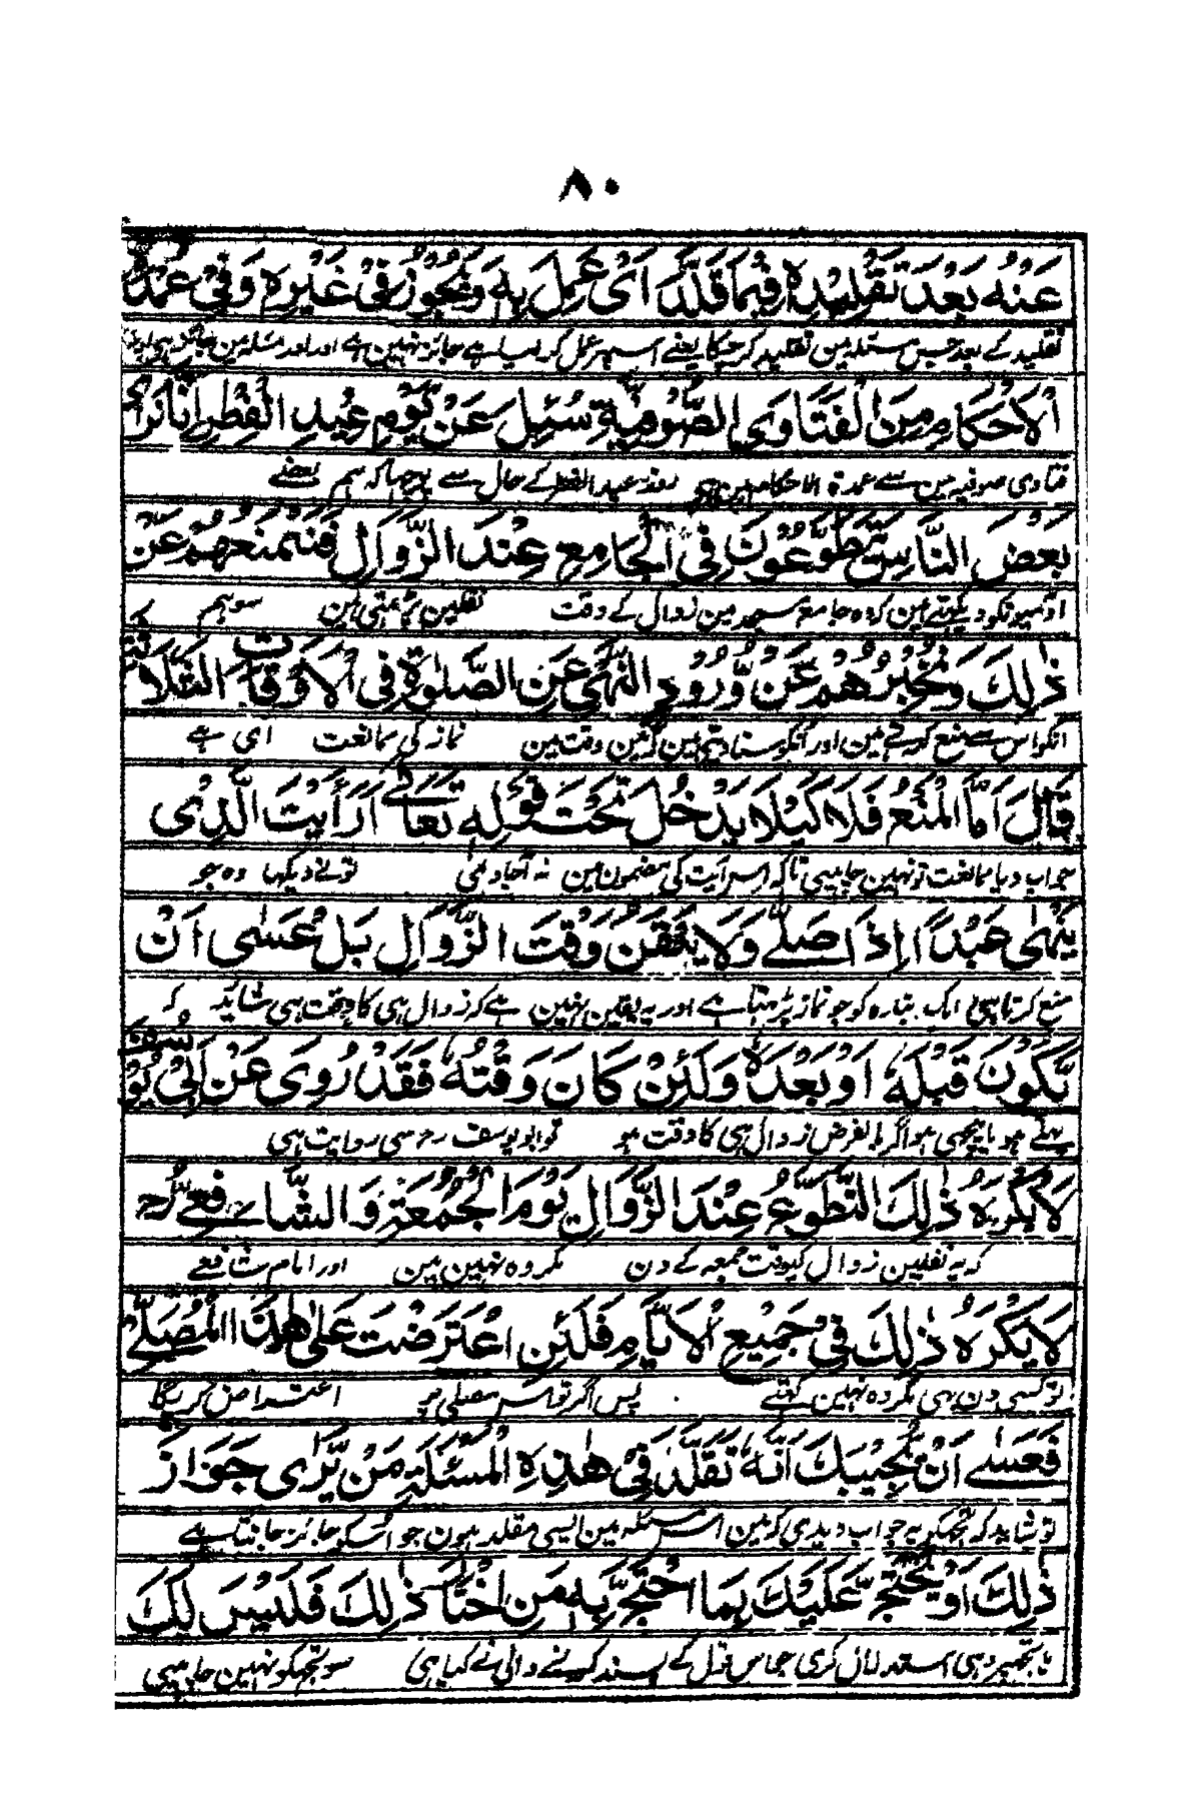 ٨٠
عَنْهُ بَعْدَ تَقْلِيْدِهٖ فِيْمَا قَلَّدَ اَىْ عَمِلَ بِهٖ وَيَجُوْزُ فِىْ غَيْرِهٖ وَفِىْ عُمْدَةِ
تقلید کے بعد جس مسئلہ مین تقلید کر چکا یعنے اسپر عمل کر لیا ہے جائز نہین ہے اور اور مسئلہ مین جائز ہی اور
الْاَحْكَامِ مِنَ الْفَتَاوَى الصُّوْفِيَّةِ سُئِلَ عَنْ يَّوْمِ عِيْدِ الْفِطْرِ اِنَّا نَرٰى
فتاوی صوفیہ مین سے عمدۃ الاحکام مین ہی روز عید الفطر کے حال سے پوچھا کہ ہم بعضے
بَعْضَ النَّاسِ يَتَطَوَّعُوْنَ فِى الْجَامِعِ عِنْدَ الزَّوَالِ فَنَمْنَعُهُمْ عَنْ
ادمیونکو دیکھتے ہین کہ وہ جامع مسجد مین زوال کے وقت نفلین پڑھتی ہین سو ہم
ذٰلِكَ وَنُخْبِرُهُمْ عَنْ وُّرُوْدِ النَّهْىِ عَنِ الصَّلٰوةِ فِى الْاَوْقَاتِ الثَّلَاثَةِ
انکو اس سے منع کرتے ہین اور انکو سنا دیتے ہین کہ تین وقت مین نماز کی ممانعت آی ہے
قَالَ اَمَّا الْمَنْعُ فَلَا كَيْلَا يَدْخُلَ تَحْتَ قَوْلِهٖ تَعَالٰے اَرَاَيْتَ الَّذِىْ
جواب دیا ممانعت تو نہین چاہیی تاکہ اس آیت کی مضمون مین نہ آجاوی تونے دیکھا وہ جو
يَنْهٰى عَبْدًا اِذَا صَلّٰے وَلَا يَتَيَقَّنُ وَقْتَ الزَّوَالِ بَلْ عَسٰى اَنْ
منع کرتا ہی ایک بندہ کو جو نماز پڑھتا ہے اور یہ یقین نہین ہے کہ زوال ہی کا وقت ہی شاید کہ
يَّكُوْنَ قَبْلَهٗ اَوْ بَعْدَهٗ وَلَئِنْ كَانَ وَقْتُهٗ فَقَدْ رُوِىَ عَنْ اَبِىْ يُوْسُفَ
پہلے ہو یا پیچھی ہو اگر بالفرض زوال ہی کا وقت ہو تو ابو یوسف رح سی روایت ہی
لَا يُكْرَهُ ذٰلِكَ التَّطَوُّعُ عِنْدَ الزَّوَالِ يَوْمَ الْجُمُعَةِ وَالشَّافِعِىُّ رح
کہ یہ نفلین زوال کیوقت جمعہ کے دن مکروہ نہین ہین اور امام شافعے
لَا يَكْرَهُ ذٰلِكَ فِىْ جَمِيْعِ الْاَيَّامِ فَلَئِنِ اعْتَرَضْتَ عَلٰى هٰذَا الْمُصَلِّے
تو کسی دن ہی مکروہ نہین کہتے پس اگر تو اس مصلی پر اعتراض کریگا
فَعَسٰے اَنْ يُّجِيْبَكَ اَنَّهٗ تَقَلَّدَ فِىْ هٰذِهِ الْمَسْئَلَةِ مَنْ يَّرٰى جَوَازَ
تو شاید کہ تجھکو یہ جواب دیدی کہ مین اس مسئلہ مین ایسی مقلد ہون جو اسکو جائز جانتا ہے
ذٰلِكَ اَوْ يَحْتَجَّ عَلَيْكَ بِمَا احْتَجَّ بِهٖ مَنِ اخْتَارَ ذٰلِكَ فَلَيْسَ لَكَ
یا تجھپر وہی استدلال کری جو اس قول کے پسند کرنے والی نے کیا ہی سو تجھکو نہین چاہیی